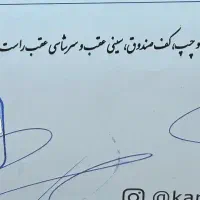 و چپ، کف صندوق، سینی عقب و سرشاسی عقب راست
@kar